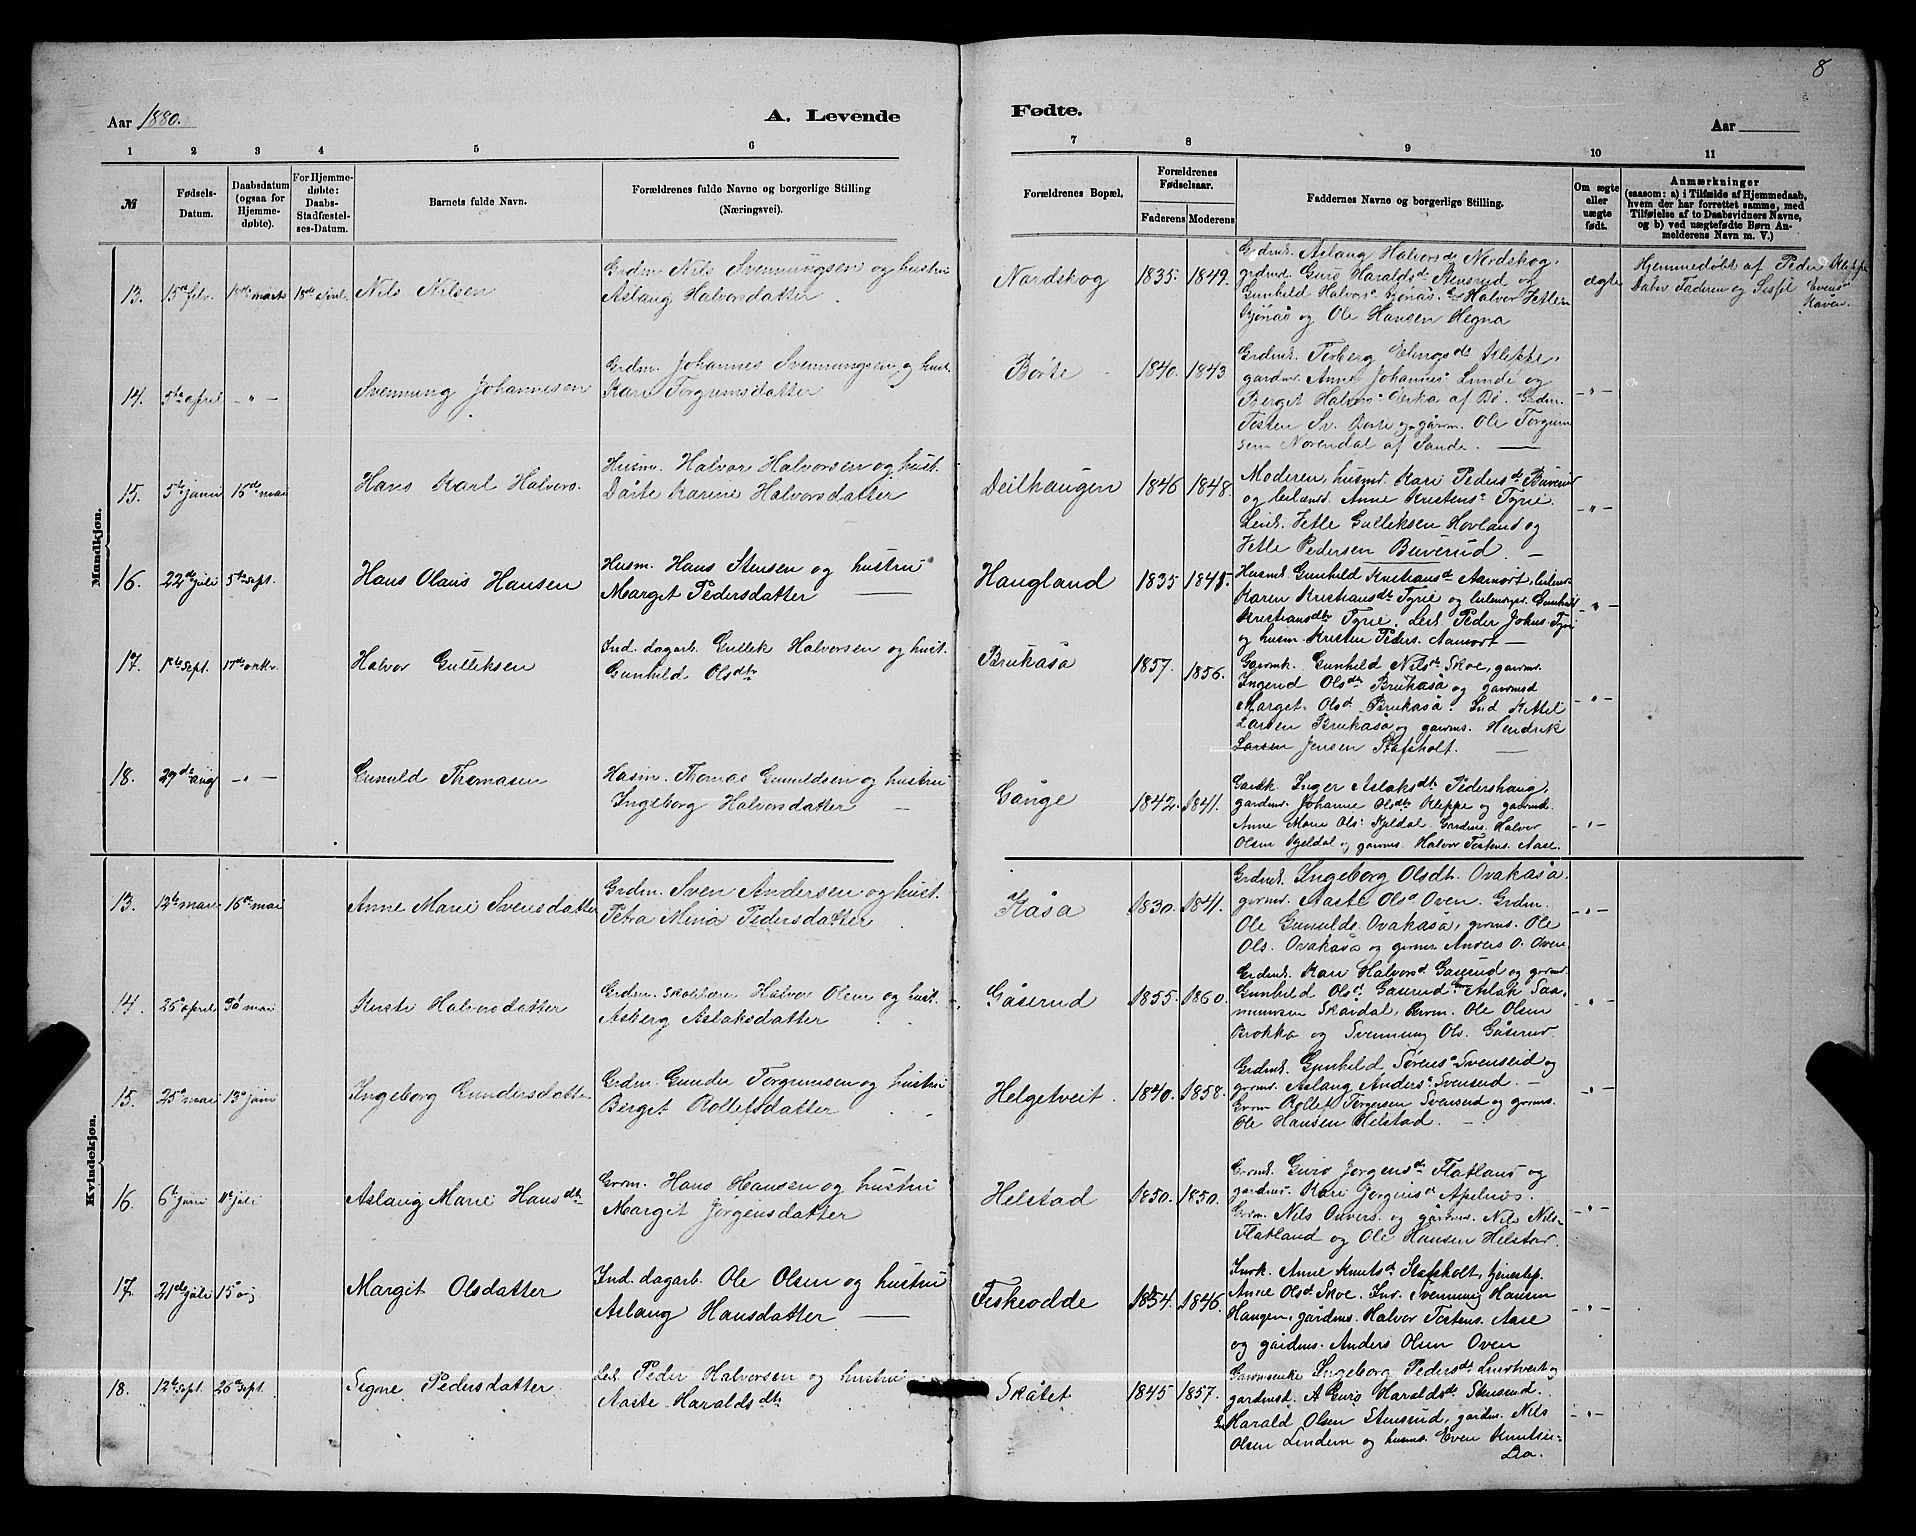 8
Aar 1880.
A. Levende
Fødte.
Aar
1 2 3 4 5 6 7 8 9 10 11
№
Fødsels-
Datum.
Daabsdatum
(ogsaa for
Hjemme-
døbte).
For Hjemme-
døbte:
Daabs-
Stadfæstel-
ses-Datum.
Barnets fulde Navn.
Forældrenes fulde Navne og borgerlige Stilling
(Næringsvei).
Forældrenes Bopæl.
Forældrenes
Fødselsaar.
Faderens Moderens
Faddernes Navne og borgerlige Stilling.
Om ægte
eller
uægte
født.
Anmærkninger
(saasom: a) i Tilfælde af Hjemmedaab,
hvem der har forrettet samme, med
Tilføielse af to Daabsvidners Navne,
og b) ved uægtefødte Børn An-
melderens Navn m. V.)
Mandkjøn.
13.
Nils Nilsen
Grdm. Nils Svennungsen og hustru
Aslaug Halvorsdatter.
Nordskog
1835. 1849.
Grdmk. Aslaug Halvorsd. Nordskog,
Guro Haraldsd. Stensrud og
Gunhild Halvors Halvor Jetle
og Ole Hansen Hegna
ægte
Hjemmedøbt af Peder Kleppe
Faderen og
14. 5te april - " -
Svennung Johannesen
Grdm. Johannes Svennungsen og hust.
Kari Torgrimsdatter
Børte
1840. 1843.
Grdmk. Torberg Kleppe,
gardm. Anne Johannes Lunde og
Berget Halvors af Bø. Grdm.
Tosten Sv. Børte og Ole Torgrim
sen Norendal af Sande.
- " -
15. 5te juni 16de mai
Hans Karl Halvors.
Husm. Halvor Halvorsen og hust.
Dårte Karine Halvorsdatter
Deilhaugen
1846 1848.
Moderen, husmd. Kari Pedersd. Buverud
og Anne Kristens Tyrie.
Jetle Gulleksen Hovland og
Jetle Pedersen Buverud.
- " -
16. 22de juli 5te sept.
Hans Olaus Hansen
Husm. Hans Stensen og hustru
Marget Pedersdatter
Haugland
1835
Husmk. Gunhild Kristiansd. Aamot,
Karen Kristiansdtr Tyrie og Gunhild
Kristiansdtr Tyrie. Leil. Peder Johns. Tyri
og husm. Kristen Peders. Aamot
- " -
17.
Halvor Gulleksen
Ind. dagarb. Gullek Halvorsen og hust.
Gunhild Olsdtr
Brukåsa
1857. 1856.
Gunhild Nilsd. Skoe,
Ingerid Olsd. Brukåsa og
Marget Olsd. Brukåsa. Ind. Kittil
Larsen Brukåsa og Hendrik
Larsen Jensen Stafsholt.
- " -
18. 29de aug - " -
Gunuld Thomasen
Husm. Thomas Gunuldsen og hustru
Ingeborg Halvorsdatter
Gånge
1842. 1841.
Inger Aslaksdtr Pedershaug,
Johanne Olsdtr Kleppe og
Anne Marie Ols. Kjeldal. Halvor
Olsen Kjeldal og Halvor Tostens. Aase.
- " -
Kvindekjøn.
13. 12te mar 16de mai
Anne Marie Svensdatter
Grdm. Sven Andersen og hust.
Petra Mina Pedersdatter.
Kåsa
1830. 1841.
Grdmk. Ingeborg Olsdtr. Ovakåsa.
Aaste Olsd. Oven. Grdm.
Ole Gunulds. Ovakåsa, Ole
Ols. Ovakåsa og Anders O. Oven
- " -
14. 26de april mai
Kirsti Halvorsdatter
Grdm. Halvor Olsen og hust.
Asberg Aslaksdatter
Gåserud
1855. 1860.
Grdmk. Kari Halvorsd. Gåserud og
Gunhild Olsd. Gåserud Aslak Saa-
mundsen Skårdal, Ole Olsen
Brokka og Svennung Ols. Gåserud.
- " -
15. 25de mai 13de juni
Ingeborg Gundersdatter
Grdm. Gunder Torgrimsen og hustru
Berget Rollefsdatter
Helgetveit
1840. 1858.
Grdmk. Gunhild Sørens Svenseid og
Aslaug Anders. Svenseid.
Rollef Torgersen Svenseid og
Ole Hansen Helstad.
- " -
16. 6te juni 11te juli
Aslaug Marie Hansdtr
Hans Hansen og hustru
Marget Jørgensdatter
Helstad
1850. 1850.
Guro Jørgensd. Flatland og
Kari Jørgensd. Apelnes.
Nils og Nils Nils-
Flatland og Ole Hansen Helstad.
- " -
17. 21de juli 15
Margit Olsdatter
Ind. dagarb. Ole Olsen og hustru
Aslaug Hansdatter
Fiskeodde
1854. 1846.
Anne Knutsd. Stafsholt, tjenestep.
Anne Olsd. Skoe. Ind. Svennung Hansen
Haugen, gårdms. Halvor Tostens. Aase
og gårdms. Anders Olsen Oven
- " -
18. 12te sept. 26de sept.
Signe Pedersdatter
Leil. Peder Halvorsen og hustru
Aaste Haraldsdtr.
Skåtet
1845 1857.
Ingeborg Pedersdtr og
Guro Haraldsd. Stensrud.
Harald Olsen Stensrud, gårdms. Nils
Olsen Lindem og husms. Even Knutsen
Lia.
- " -